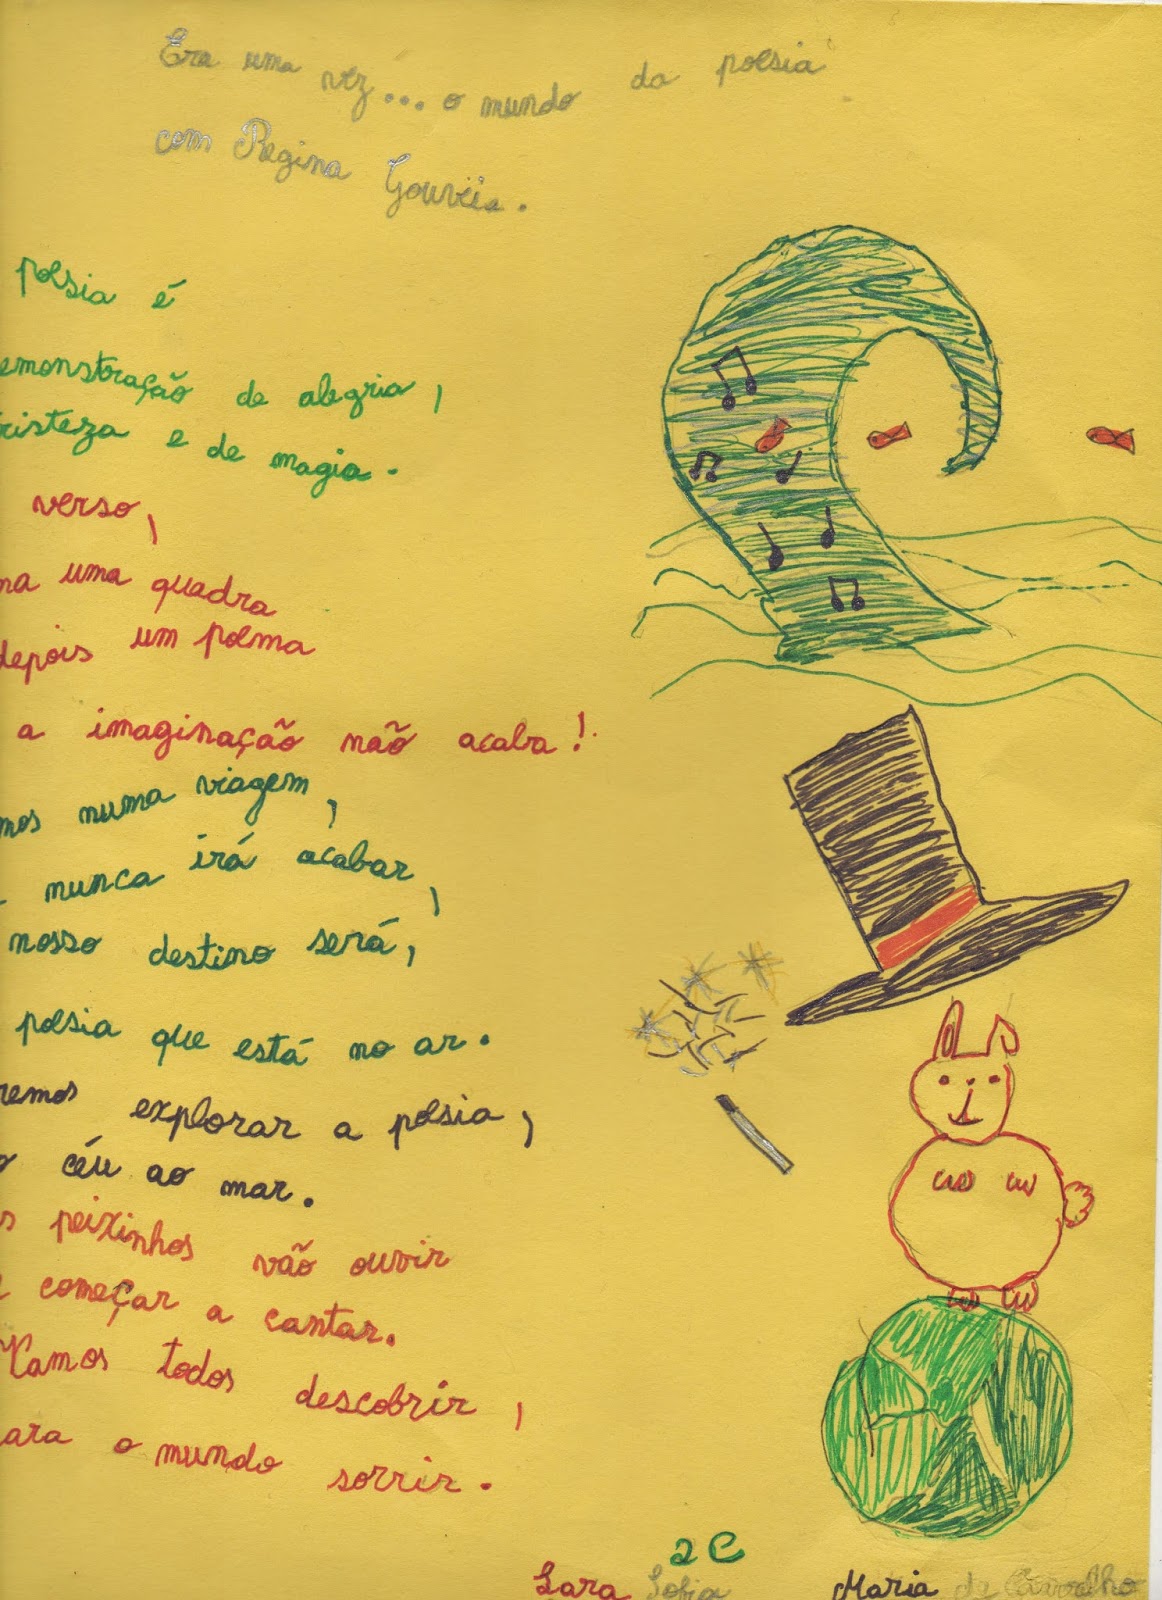 Era uma vez... o mundo da poesia
com Regina Gouveia.
poesia é
emonstração de alegria,
risteza e de magia.
verso,
ma uma quadra
depois um poema
a imaginação não acaba!
mos numa viagem,
nunca irá acabar,
nosso destino será,
poesia que está no ar.
remos explorar a poesia,
o céu ao mar.
s peixinhos vão ouvir
e começar a cantar.
Vamos todos descobrir,
ara o mundo sorrir.
2C
Lara Sofia Maria de Carvalho